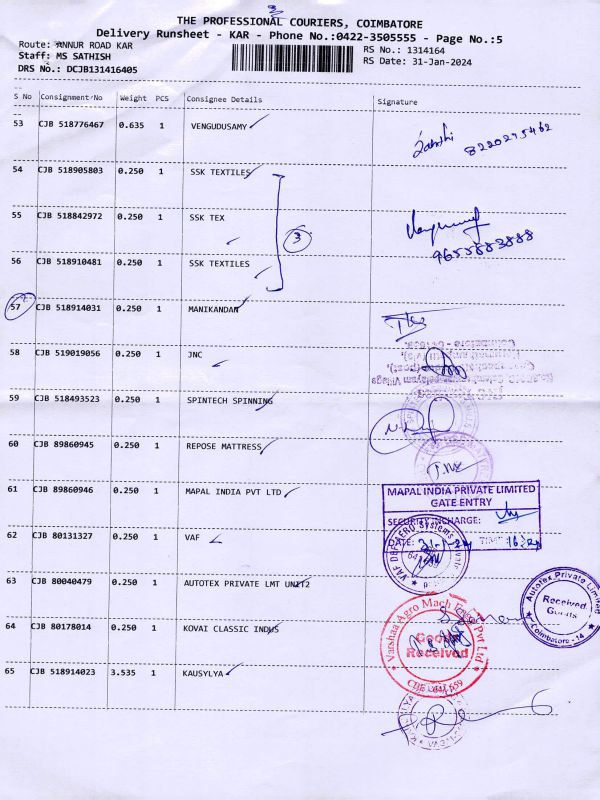 THE PROFESSIONAL COURIERS, COIMBATORE
Delivery Runsheet - KAR - Phone No.:0422-3505555 - Page No.:5
Route: ANNUR ROAD KAR
RS No.: 1314164
Staff: MS SATHISH
RS Date: 31-Jan-2024
DRS No.: DCJB131416405
S No Consignment No Weight PCS Consignee Details Signature
53 CJB 518776467 0.635 1 VENGUDUSAMY
8220275462
54 CJB 518905803 0.250 1 SSK TEXTILES
55 CJB 518842972 0.250 1 SSK TEX
3
9655883888
56 CJB 518910481 0.250 1 SSK TEXTILES
57 CJB 518914031 0.250 1 MANIKANDAN
58 CJB 519019056 0.250 1 JNC
59 CJB 518493523 0.250 1 SPINTECH SPINNING
60 CJB 89860945 0.250 1 REPOSE MATTRESS
61 CJB 89860946 0.250 1 MAPAL INDIA PVT LTD
MAPAL INDIA PRIVATE LIMITED
GATE ENTRY
SECURITY INCHARGE:
DATE:
62 CJB 80131327 0.250 1 VAF
63 CJB 80040479 0.250 1 AUTOTEX PRIVATE LMT UNIT2
Autotex Private Limited
Received
Goods
Coimbatore - 14
64 CJB 80178014 0.250 1 KOVAI CLASSIC INDUS
Goods
Received
65 CJB 518914023 3.535 1 KAUSYLYA